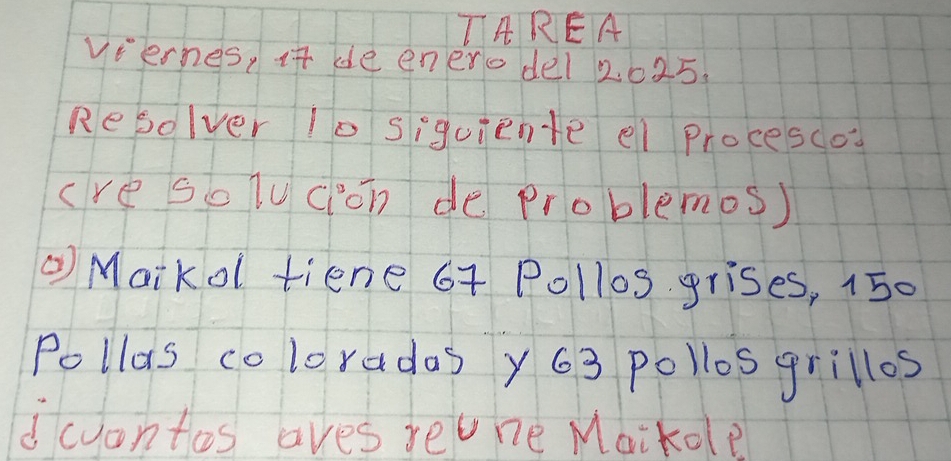 TAREA
Viernes, 17 de enero del 2.025.
Resolver lo siguiente el Procesco:
(resolución de Problemos)
a) Maikol tiene 67 Pollos grises, 150
Pollas coloradas y 63 pollos grillos
¿cuantos aves reune Maikol?